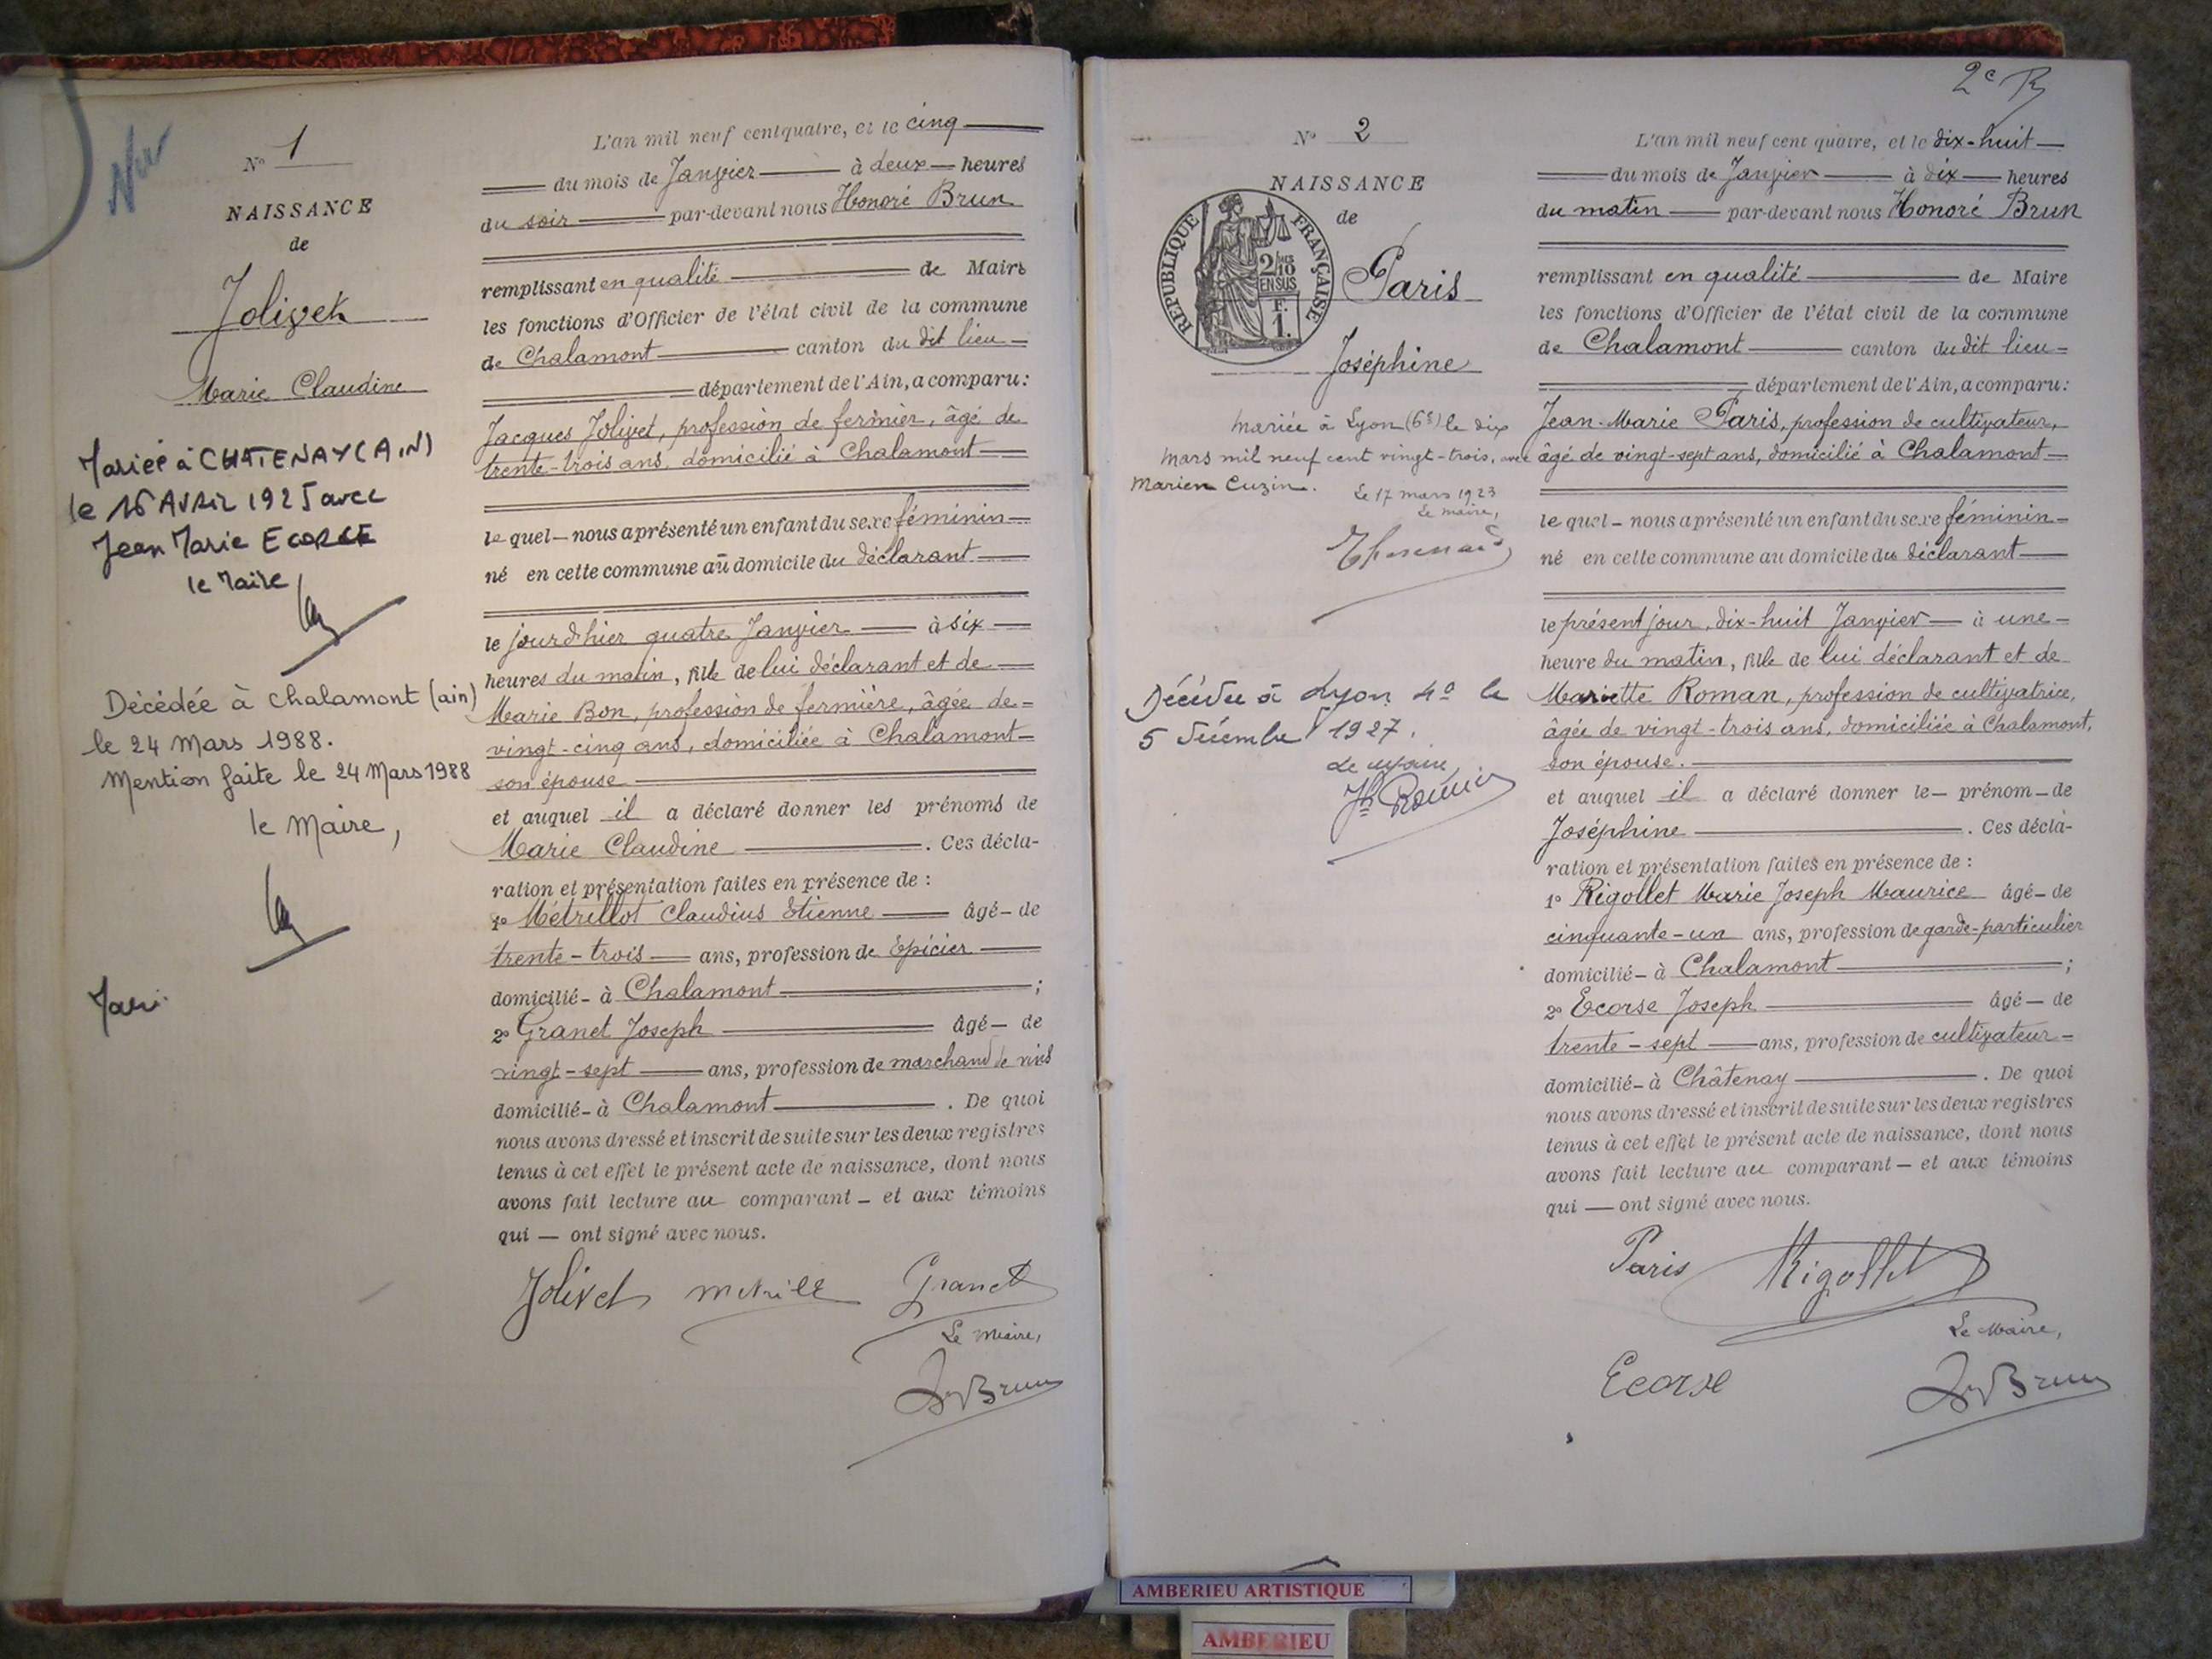 Nº 1
NAISSANCE
de
Jolivet
Marie Claudine
Mariée à CHATENAY (AIN)
le 16 AVRIL 1925 avec
Jean Marie ECORCE
le Maire
Décédée à Chalamont (ain)
le 24 Mars 1988.
Mention faite le 24 Mars 1988
le Maire,
L'an mil neuf cent quatre, et le cinq
du mois de Janvier à deux heures
du soir par-devant nous Honoré Brun
remplissant en qualité de Maire
les fonctions d'Officier de l'état civil de la commune
de Chalamont canton du dit lieu
département de l'Ain, a comparu:
Jacques Jolivet, profession de fermier, âgé de
trente-trois ans, domicilié à Chalamont
le quel nous a présenté un enfant du sexe féminin
né en cette commune au domicile du déclarant
le jour d'hier quatre Janvier à six
heures du matin, fille de lui déclarant et de
Marie Bon, profession de fermière, âgée de
vingt-cinq ans, domiciliée à Chalamont
son épouse
et auquel il a déclaré donner les prénoms de
Marie Claudine. Ces décla-
ration et présentation faites en présence de :
1º Métrillot Claudius Etienne âgé de
trente-trois ans, profession de Epicier
domicilié à Chalamont ;
2º Granet Joseph âgé de
vingt-sept ans, profession de marchand de vins
domicilié à Chalamont. De quoi
nous avons dressé et inscrit de suite sur les deux registres
tenus à cet effet le présent acte de naissance, dont nous
avons fait lecture au comparant et aux témoins
qui ont signé avec nous.
Jolivet Granet
Le Maire,
Brun
2e
Nº 2
NAISSANCE
de
REPUBLIQUE FRANÇAISE
2/10
EN SUS
F.
1.
Paris
Joséphine
Mariée à Lyon (6e) le dix
Mars mil neuf cent vingt-trois, avec
Marien Cuzin.
Le 17 mars 1923
Le maire,
Décédée à Lyon 4º le
5 Décembre 1927.
Le Maire
L'an mil neuf cent quatre, et le dix-huit
du mois de Janvier à dix heures
du matin par-devant nous Honoré Brun
remplissant en qualité de Maire
les fonctions d'Officier de l'état civil de la commune
de Chalamont canton du dit lieu
département de l'Ain, a comparu:
Jean-Marie Paris, profession de cultivateur,
âgé de vingt-sept ans, domicilié à Chalamont
le quel nous a présenté un enfant du sexe féminin
né en cette commune au domicile du déclarant
le présent jour, dix-huit Janvier à une
heure du matin, fille de lui déclarant et de
Mariette Roman, profession de cultivatrice,
âgée de vingt-trois ans, domiciliée à Chalamont,
son épouse.
et auquel il a déclaré donner le prénom de
Joséphine. Ces décla-
ration et présentation faites en présence de :
1º Rigollet Marie Joseph Maurice âgé de
cinquante-un ans, profession de garde-particulier
domicilié à Chalamont ;
2º Ecorse Joseph âgé de
trente-sept ans, profession de cultivateur
domicilié à Châtenay. De quoi
nous avons dressé et inscrit de suite sur les deux registres
tenus à cet effet le présent acte de naissance, dont nous
avons fait lecture au comparant et aux témoins
qui ont signé avec nous.
Paris Rigollet
Le Maire,
Ecorse Brun
AMBERIEU ARTISTIQUE
AMBERIEU